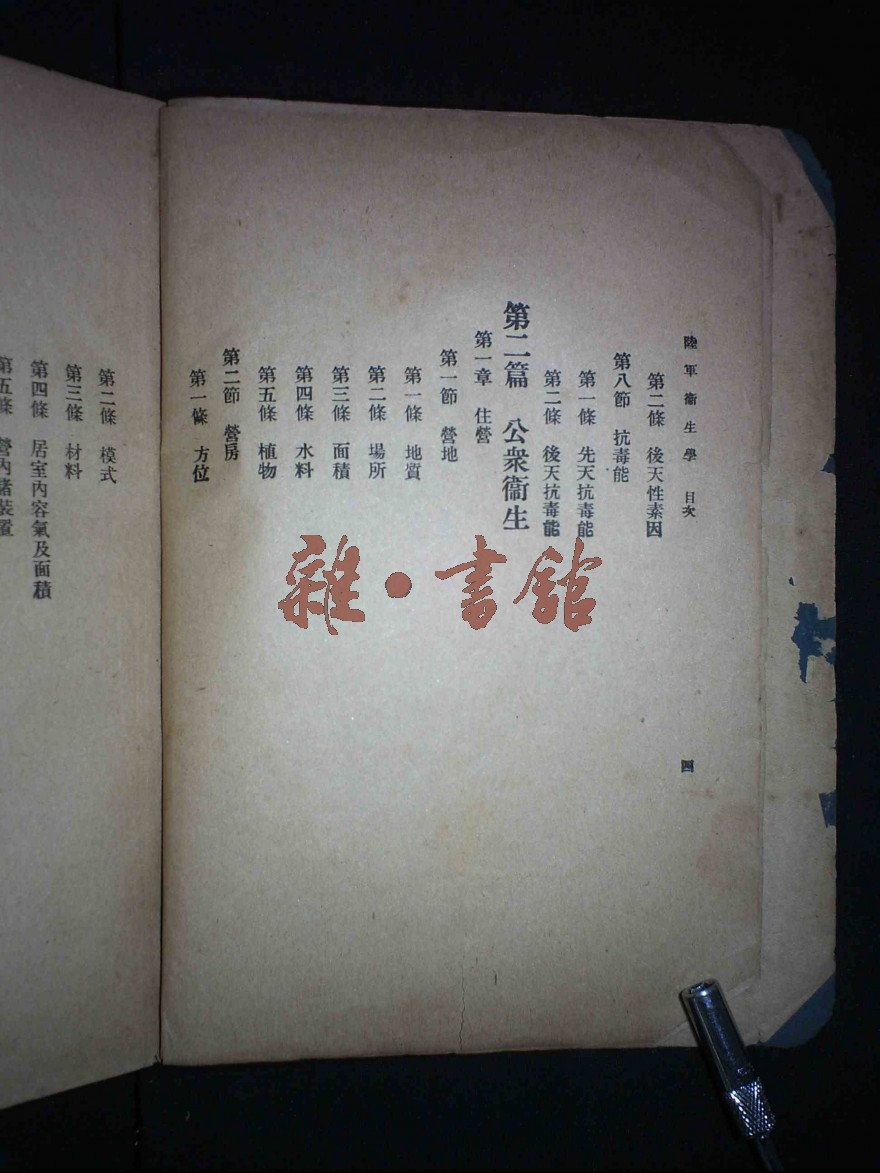 陸軍衞生學 目次
四
第二條 後天性素因
第八節 抗毒能
第一條 先天抗毒能
第二條 後天抗毒能
第二篇 公衆衞生
第一章 住營
第一節 營地
第一條 地質
第二條 場所
第三條 面積
第四條 水料
第五條 植物
第二節 營房
第一條 方位
第二條 模式
第三條 材料
第四條 居室內容氣及面積
第五條 營內諸裝置
雜·書館